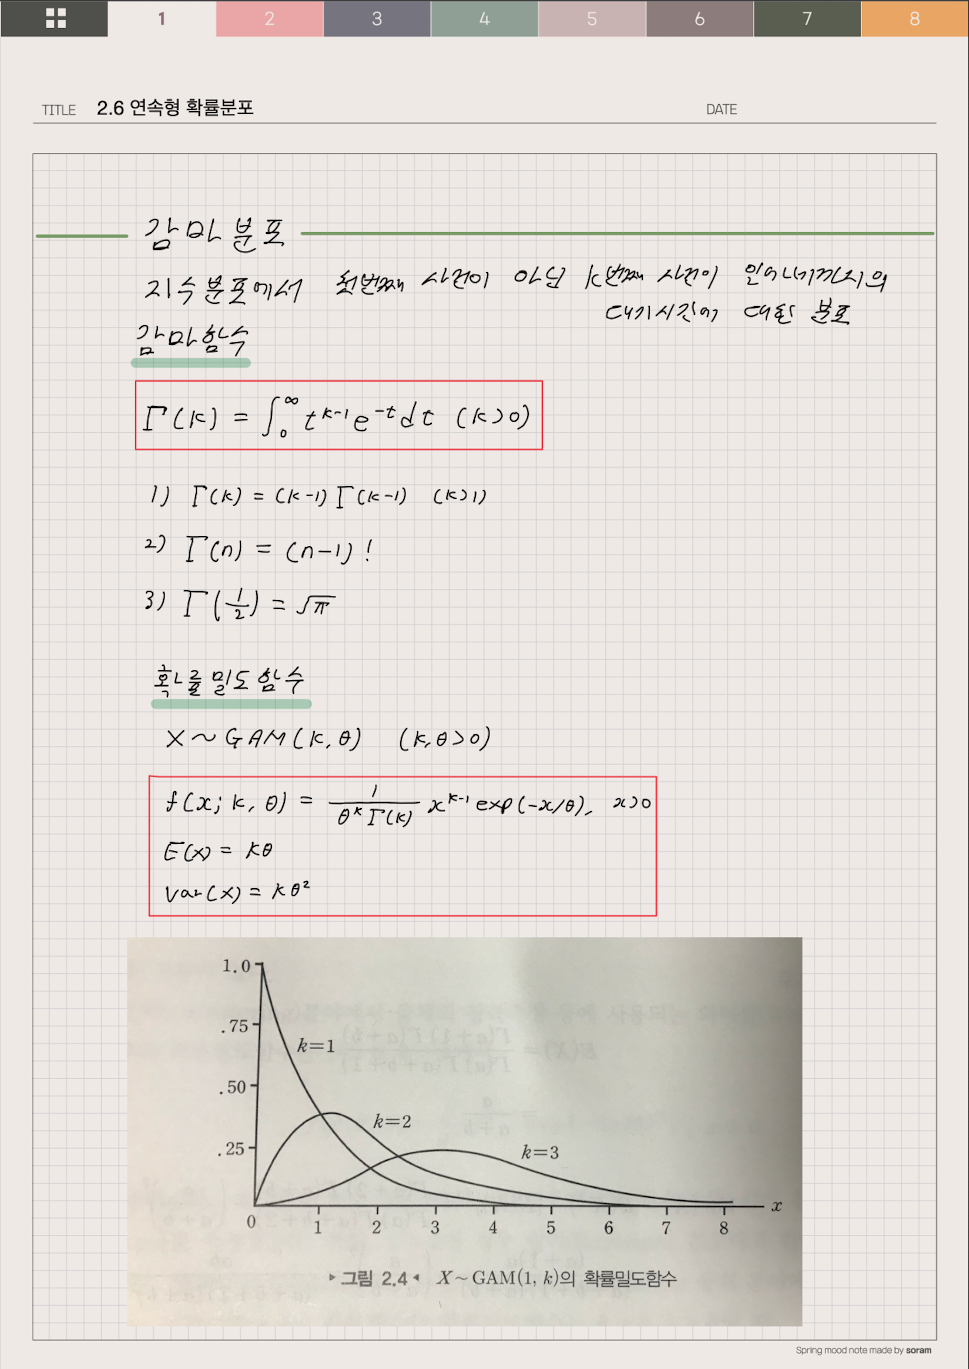 1 2 3 4 5 6 7 8
TITLE 2.6 연속형 확률분포 DATE
감마분포
지수분포에서 첫번째 사건이 아닌 k번째 사건이 일어나기까지의
대기시간에 대한 분포
감마함수
Γ(k) = ∫₀^∞ t^{k-1} e^{-t} dt (k>0)
1) Γ(k) = (k-1) Γ(k-1) (k>1)
2) Γ(n) = (n-1)!
3) Γ(1/2) = √π
확률밀도함수
X ~ GAM(k, θ) (k, θ > 0)
f(x; k, θ) = 1/(θ^k Γ(k)) x^{k-1} exp(-x/θ), x>0
E(x) = kθ
Var(x) = kθ²
1.0
.75
k=1
.50
k=2
.25
k=3
x
0 1 2 3 4 5 6 7 8
▸그림 2.4◂ X~GAM(1, k)의 확률밀도함수
Spring mood note made by soram